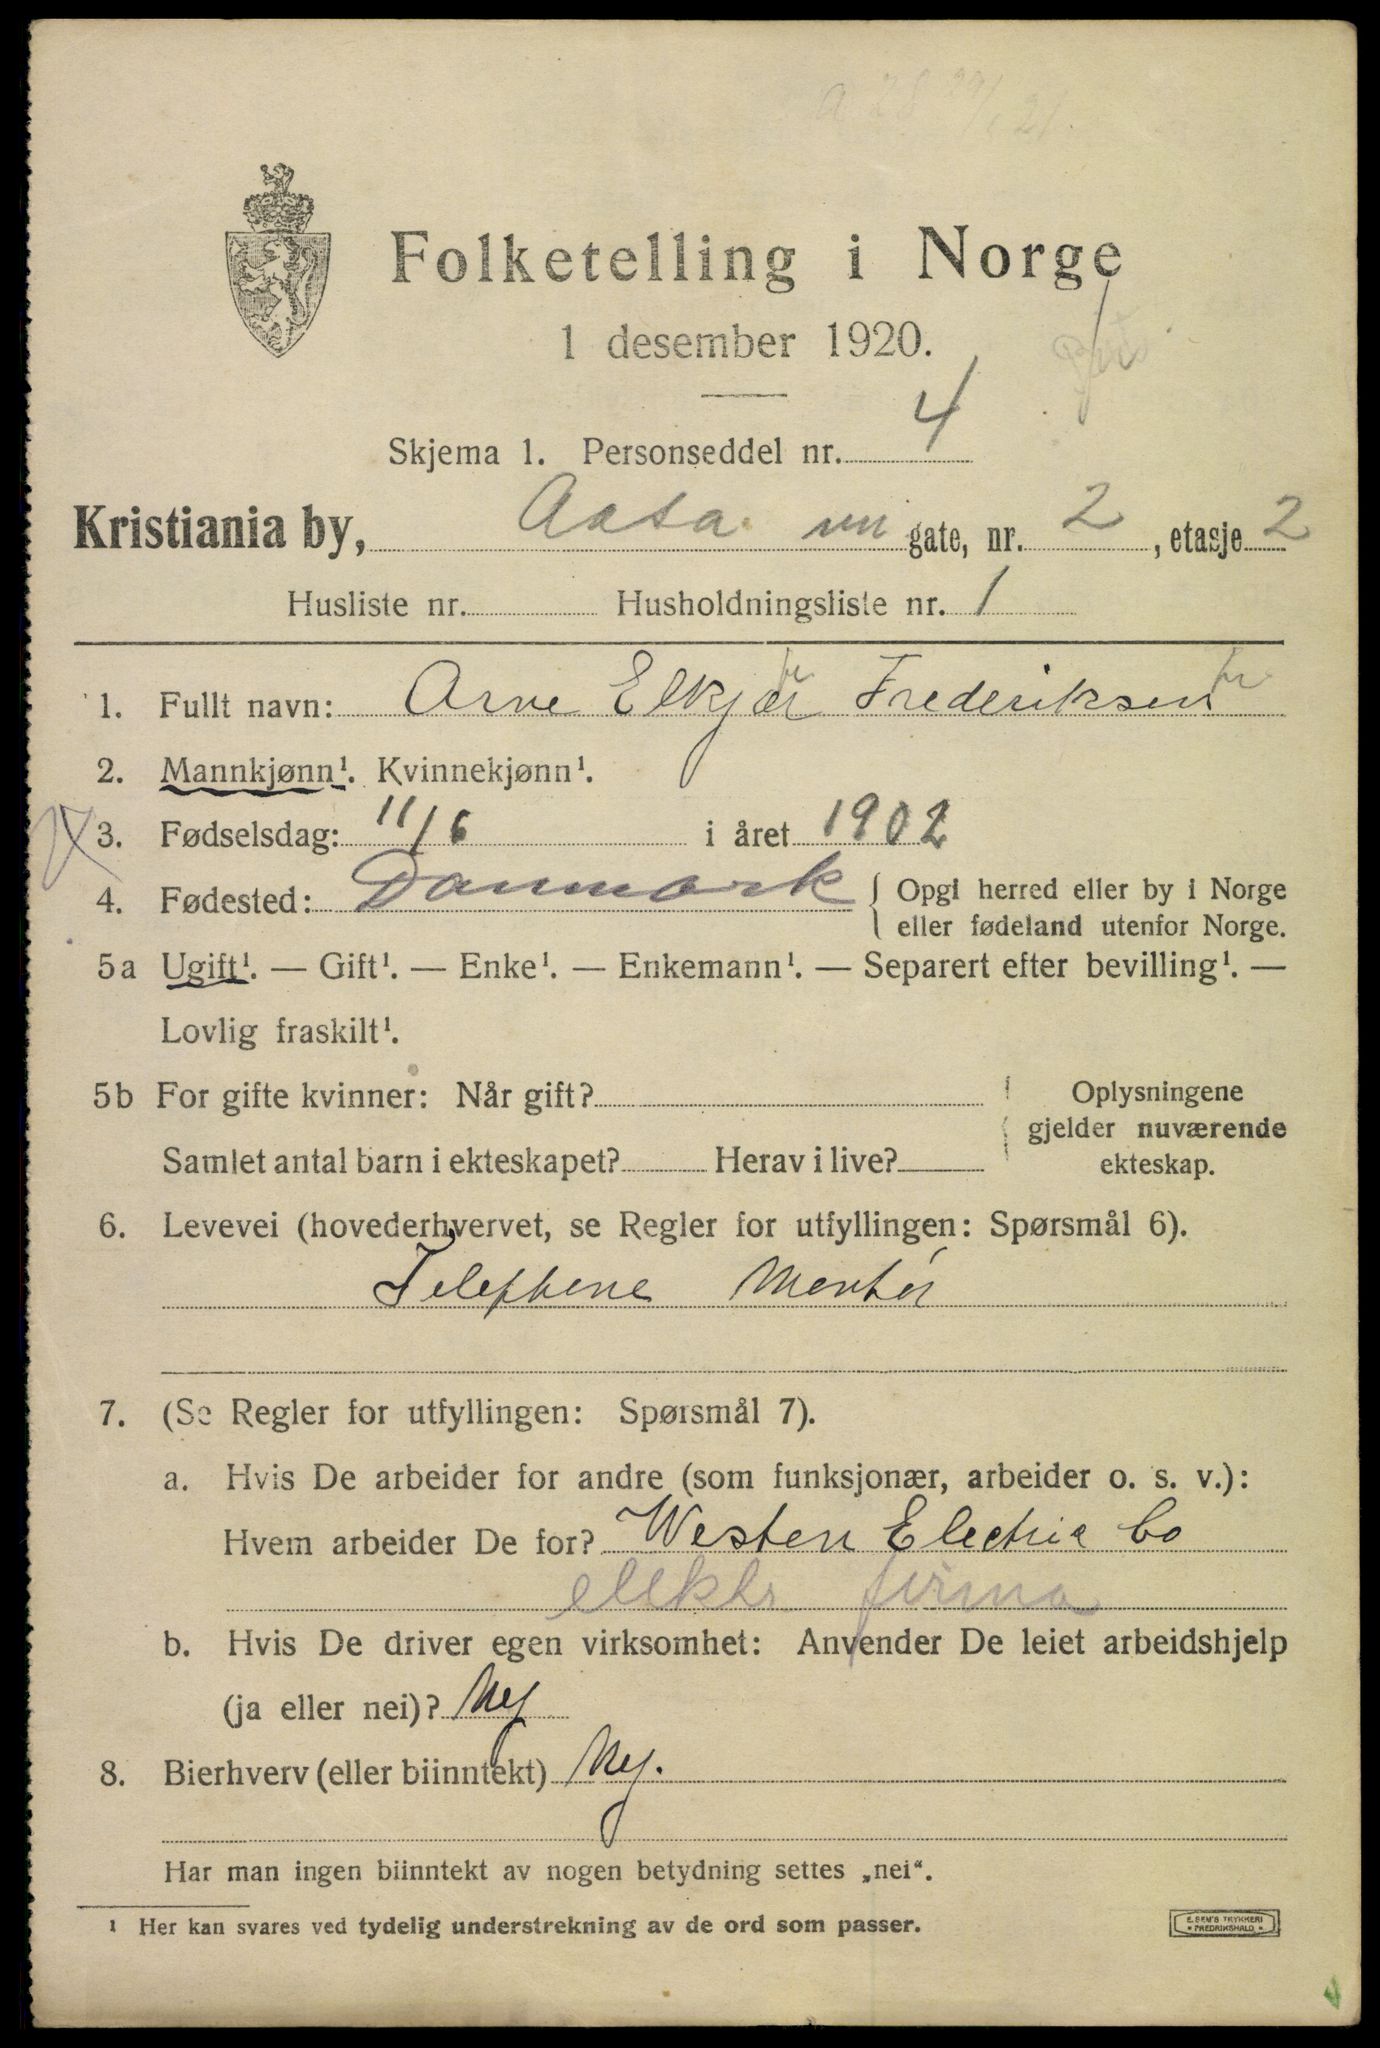 Folketelling i Norge
1 desember 1920.
Skjema 1. Personseddel nr. 4
Kristiania by, Aasa vn gate, nr. 2, etasje 2
Husliste nr. Husholdningsliste nr. 1
1. Fullt navn: Arne Elkjær Frederiksen
2. Mannkjønn¹. Kvinnekjønn¹.
3. Fødselsdag: 11/6 i året 1902
4. Fødested: Danmark { Opgi herred eller by i Norge
eller fødeland utenfor Norge.
5a Ugift¹. — Gift¹. — Enke¹. — Enkemann¹. — Separert efter bevilling¹. —
Lovlig fraskilt¹.
5b For gifte kvinner: Når gift? Oplysningene
gjelder nuværende
Samlet antal barn i ekteskapet? Herav i live? ekteskap.
6. Levevei (hovederhvervet, se Regler for utfyllingen: Spørsmål 6).
Telephone Montør
7. (Se Regler for utfyllingen: Spørsmål 7).
a. Hvis De arbeider for andre (som funksjonær, arbeider o. s. v.):
Hvem arbeider De for? Western Electric Co
elektr firma
b. Hvis De driver egen virksomhet: Anvender De leiet arbeidshjelp
(ja eller nei)? Nej
8. Bierhverv (eller biinntekt) Nej.
Har man ingen biinntekt av nogen betydning settes „nei“.
¹ Her kan svares ved tydelig understrekning av de ord som passer.
E. SEM'S TRYKKERI
* FREDRIKSHALD *